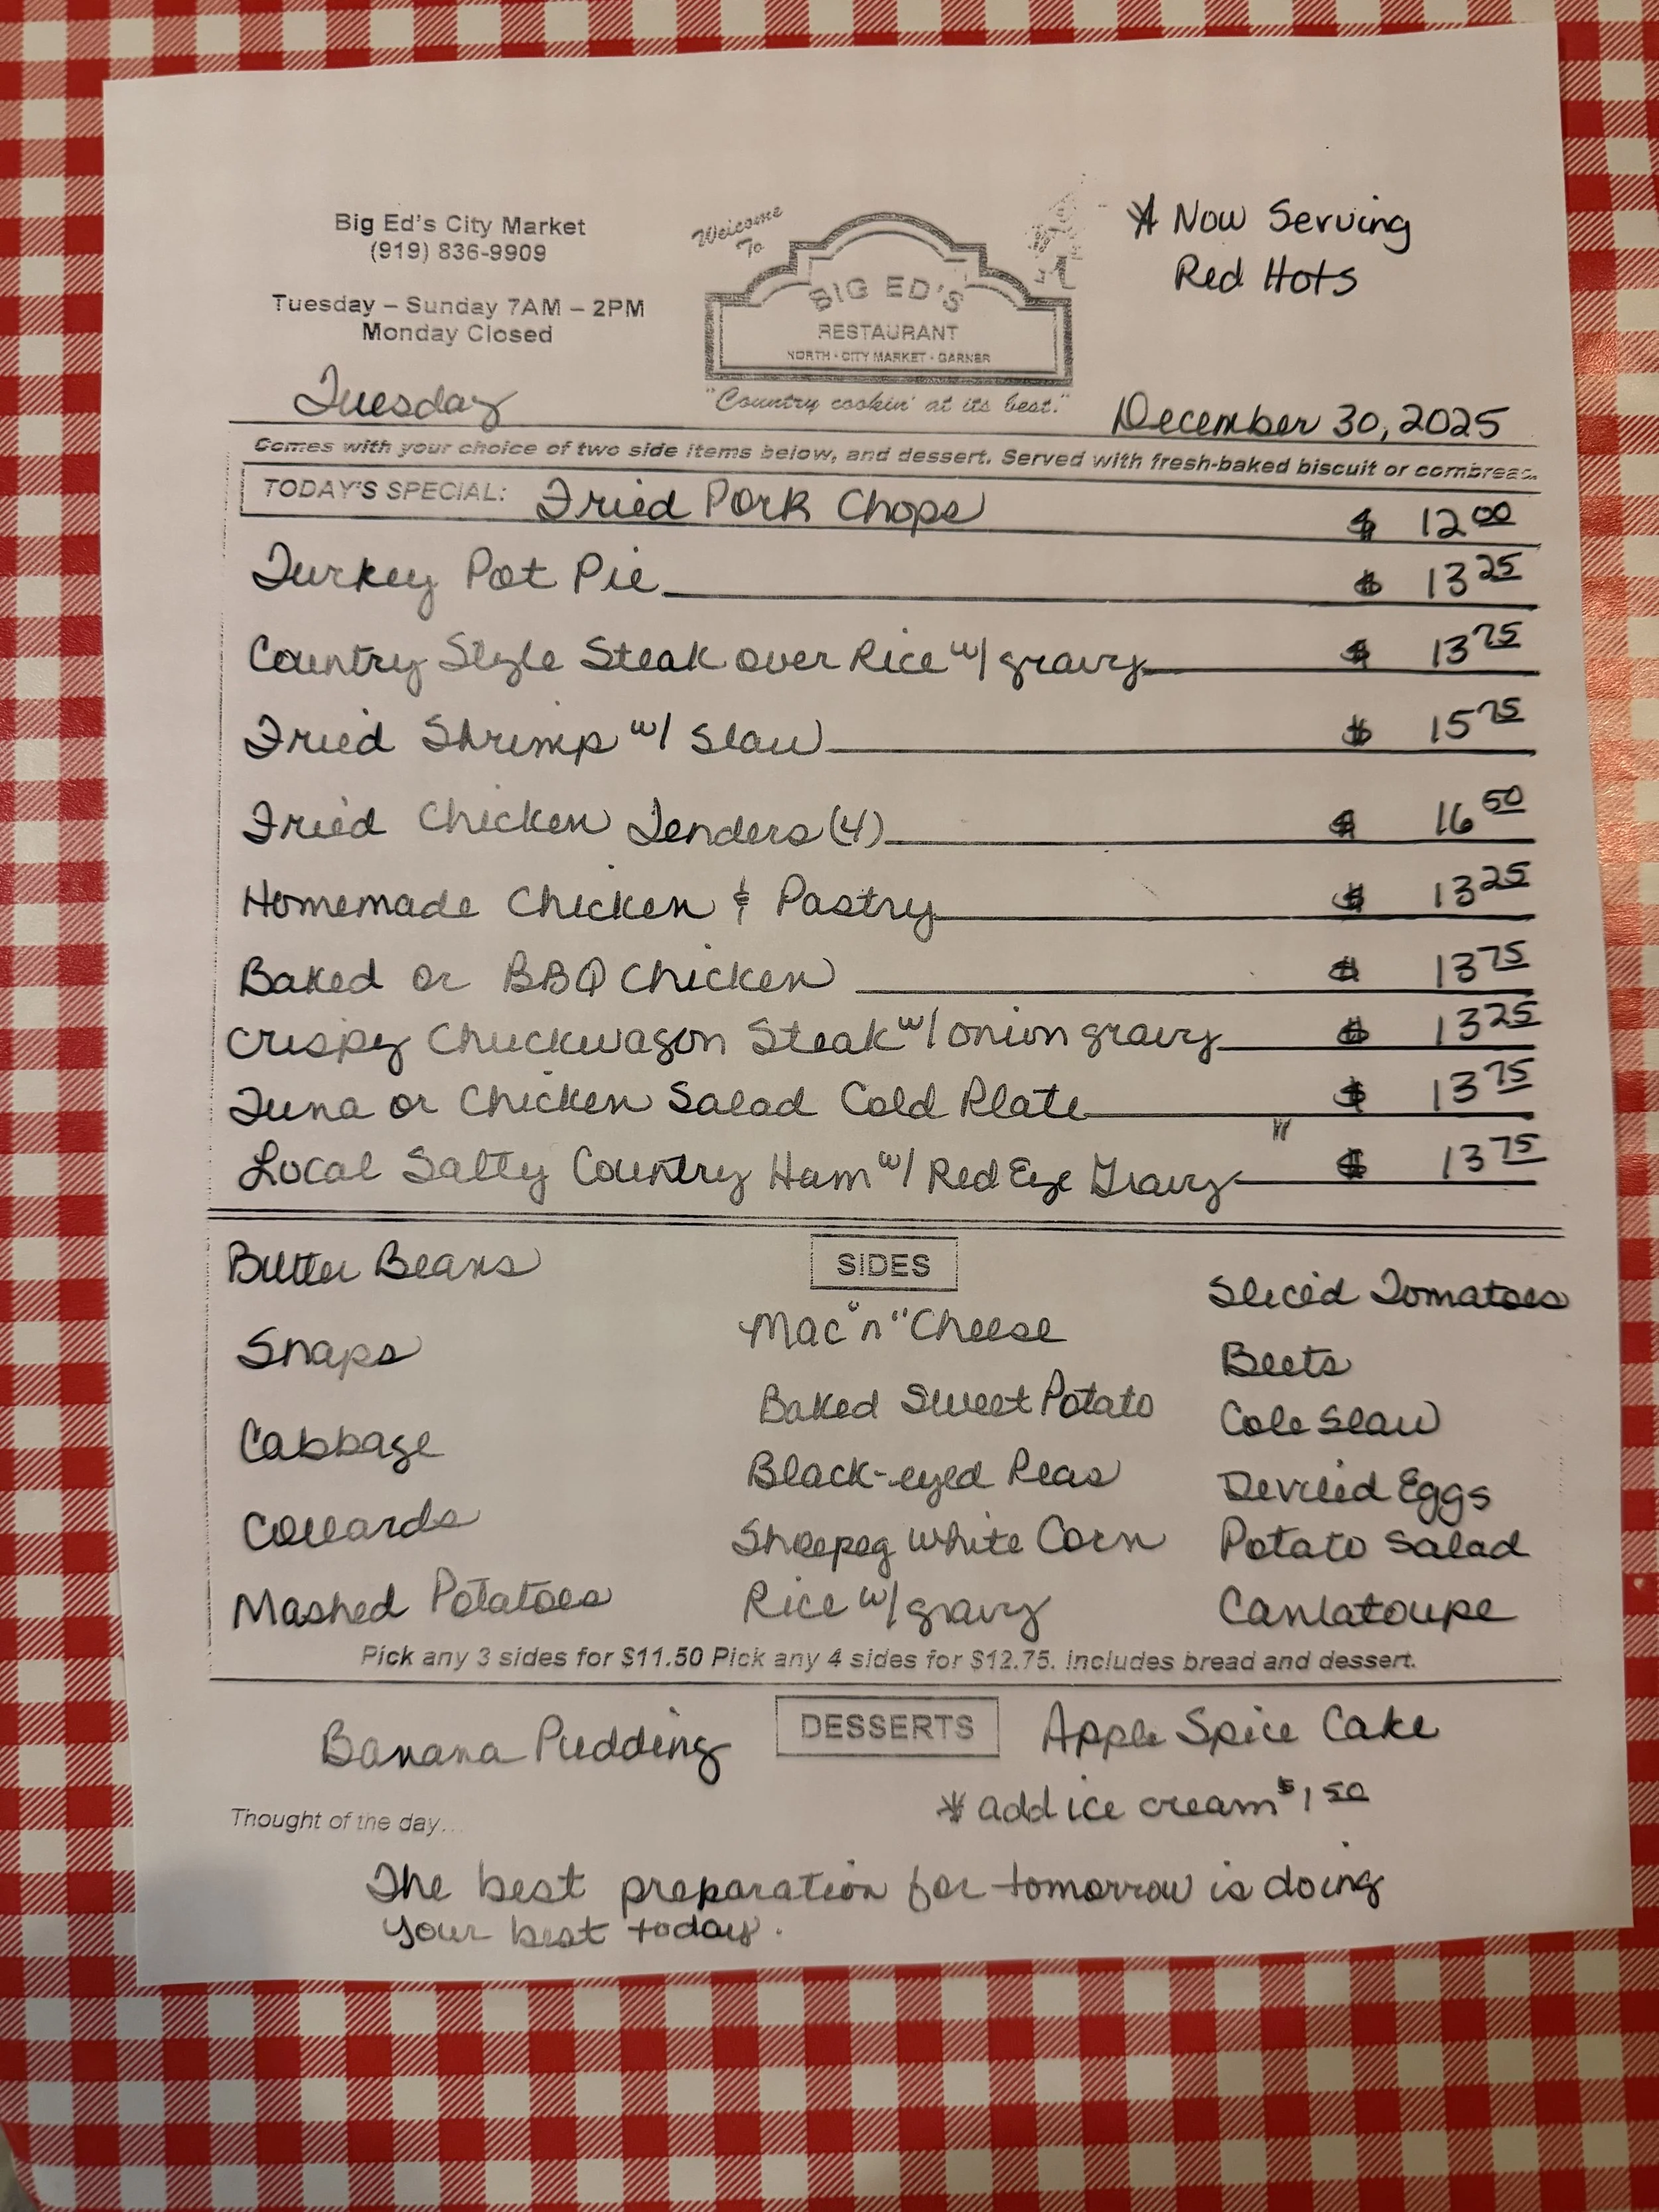 Big Ed's City Market
(919) 836-9909
Tuesday – Sunday 7AM – 2PM
Monday Closed
Welcome
To
BIG ED'S
RESTAURANT
NORTH · CITY MARKET · GARNER
"Country cookin' at its best."
* Now Serving
Red Hots
Tuesday
December 30, 2025
Comes with your choice of two side items below, and dessert. Served with fresh-baked biscuit or cornbread.
TODAY'S SPECIAL: Fried Pork Chops $ 12 00
Turkey Pot Pie $ 13 25
Country Style Steak over Rice w/ gravy $ 13 75
Fried Shrimp w/ Slaw $ 15 75
Fried Chicken Tenders (4) $ 16 50
Homemade Chicken & Pastry $ 13 25
Baked or BBQ Chicken $ 13 75
Crispy Chuckwagon Steak w/ onion gravy $ 13 25
Tuna or Chicken Salad Cold Plate $ 13 75
Local Salty Country Ham w/ Red Eye Gravy $ 13 75
SIDES
Butter Beans
Snaps
Cabbage
Collards
Mashed Potatoes
Mac "n" Cheese
Baked Sweet Potato
Black-eyed Peas
Shoepeg White Corn
Rice w/ gravy
Sliced Tomatoes
Beets
Cole Slaw
Deviled Eggs
Potato Salad
Canlatoupe
Pick any 3 sides for $11.50 Pick any 4 sides for $12.75. Includes bread and dessert.
DESSERTS
Banana Pudding
Apple Spice Cake
* add ice cream $1 50
Thought of the day...
The best preparation for tomorrow is doing
your best today.